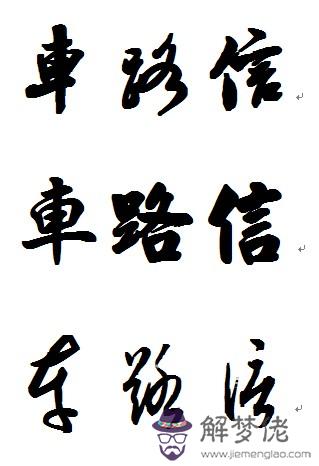 車路信
車路信
车路信
解梦佬
www.jiemenglao.com